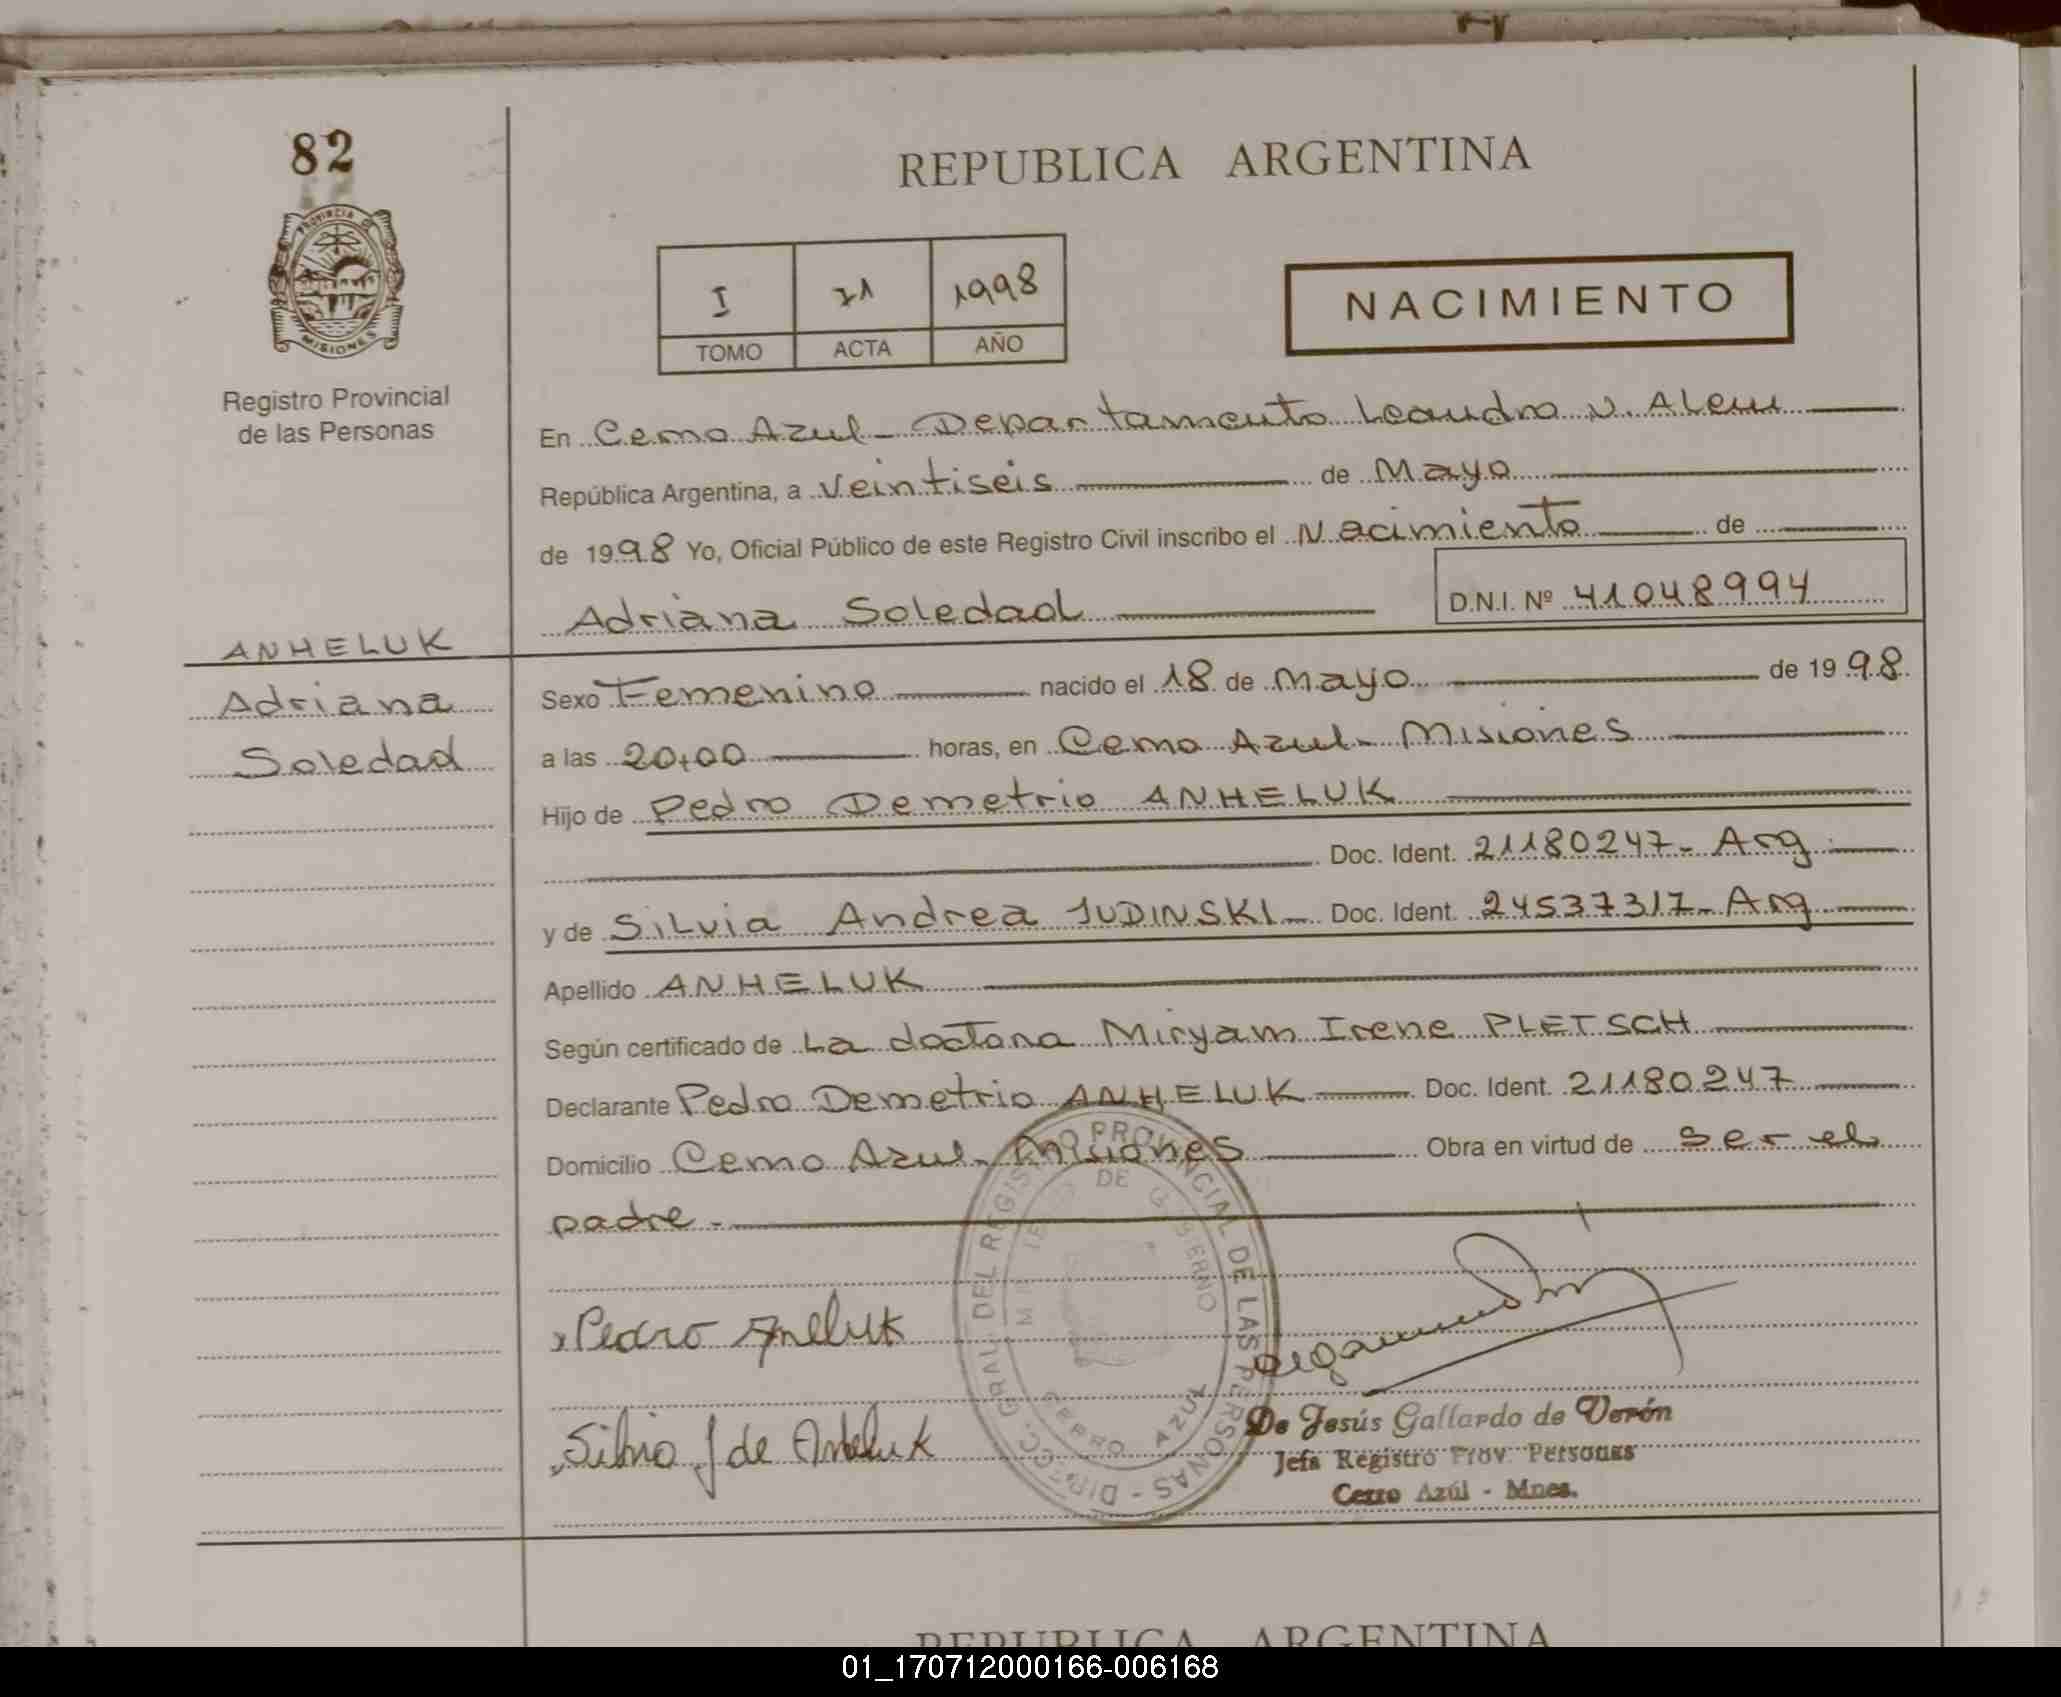 82
REPUBLICA ARGENTINA
PROVINCIA DE
MISIONES
Registro Provincial
de las Personas
I 71 1998
TOMO ACTA AÑO
NACIMIENTO
En Cerro Azul - Departamento Leandro N. Alem
República Argentina, a veintiseis de Mayo
de 1998 Yo, Oficial Público de este Registro Civil inscribo el Nacimiento de
Adriana Soledad D.N.I. Nº 41048994
ANHELUK
Adriana
Soledad
Sexo Femenino nacido el 18 de Mayo de 1998
a las 20,00 horas, en Cerro Azul - Misiones
Hijo de Pedro Demetrio ANHELUK
Doc. Ident. 21180247 - Arg
y de Silvia Andrea JUDINSKI Doc. Ident. 24537317 - Arg
Apellido ANHELUK
Según certificado de La doctora Miryam Irene PLETSCH
Declarante Pedro Demetrio ANHELUK Doc. Ident. 21180247
Domicilio Cerro Azul - Misiones Obra en virtud de ser el
padre -
Pedro Aneluk
Silvia J de Aneluk
DIRECC. GRAL. DEL REGISTRO PROVINCIAL DE LAS PERSONAS -
DE GOBIERNO
CERRO AZUL
De Jesús Gallardo de Verón
Jefa Registro Prov. Personas
Cerro Azúl - Mnes.
REPUBLICA ARGENTINA
01_170712000166-006168